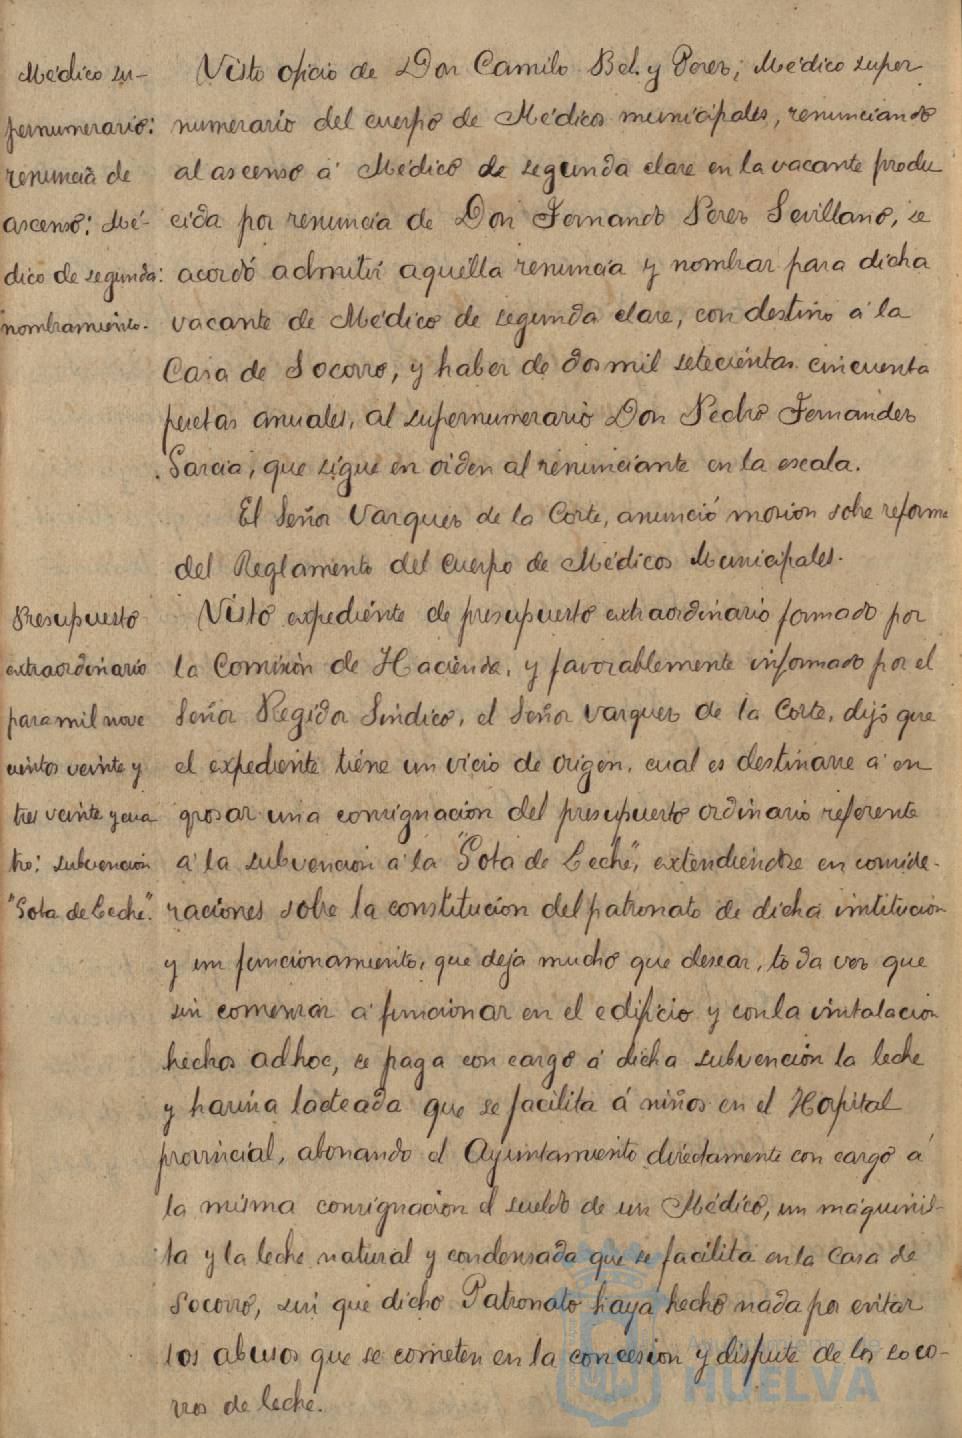 Médico su-
pernumerario:
renuncia de
ascenso: Mé-
dico de segunda:
nombramiento.
Visto oficio de Don Camilo Bel y Perez, Médico super
numerario del cuerpo de Médicos municipales, renunciando
al ascenso á Médico de segunda clase en la vacante produ
cida por renuncia de Don Fernando Perez Sevillano, se
acordó admitir aquélla renuncia y nombrar para dicha
vacante de Médico de segunda clase, con destino á la
Casa de Socorro, y haber de dos mil setecientas cincuenta
pesetas anuales, al supernumerario Don Pedro Fernandez
Garcia, que sigue en orden al renunciante en la escala.
El Señor Vazquez de la Corte, anunció mocion sobre reforma
del Reglamento del Cuerpo de Médicos Municipales.
Presupuesto
extraordinario
para mil nove
cientos veinte y
tres veinte y cua
tro: subvención
"Gota de Leche".
Visto expediente de presupuesto extraordinario formado por
la Comisión de Hacienda, y favorablemente informado por el
Señor Regidor Sindico, el Señor Vazquez de la Corte, dijó que
el expediente tiéne un vicio de origen, cual es destinarse á en
grosar una consignación del presupuesto ordinario referente
á la subvención á la "Gota de Leche", extendiéndose en conside-
raciones sobre la constitución del patronato de dicha institución
y su funcionamiento, que deja mucho que desear, toda vez que
sin comenzar á funcionar en el edificio y con la instalación
hechos adhoc, se paga con cargo á dicha subvención la leche
y harina lacteada que se facilita á niños en el Hospital
provincial, abonando el Ayuntamiento directamente con cargo á
la misma consignación el sueldo de un Médico, un maquinis-
ta y la leche natural y condensada que se facilita en la Casa de
Socorro, sin que dicho Patronato haya hecho nada por evitar
los abusos que se cometen en la concesión y disfrute de los soco-
rros de leche.
Ayuntamiento de
HUELVA